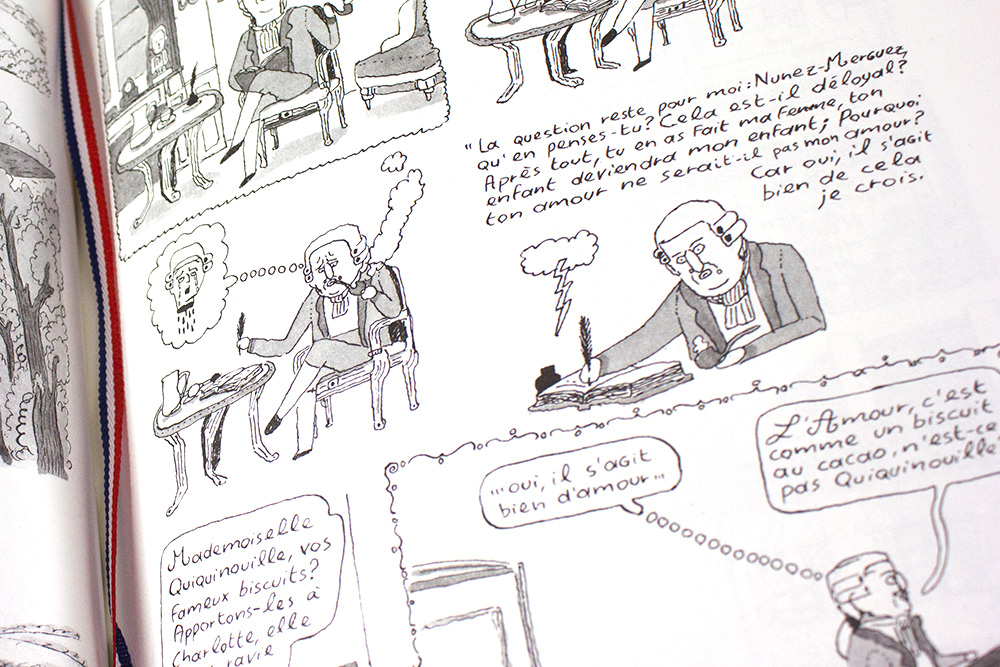 "La question reste pour moi : Nunez-Merguez,
qu'en penses-tu? Cela est-il déloyal?
Après tout, tu en as fait ma femme, ton
enfant deviendra mon enfant; Pourquoi
ton amour ne serait-il pas mon amour?
Car oui, il s'agit
bien de cela
je crois.
...oui, il s'agit
bien d'amour...
L'Amour, c'est
comme un biscuit
au cacao, n'est-ce
pas Quiquinouille
Mademoiselle
Quiquinouille, vos
fameux biscuits?
Apportons-les à
Charlotte, elle
ravie